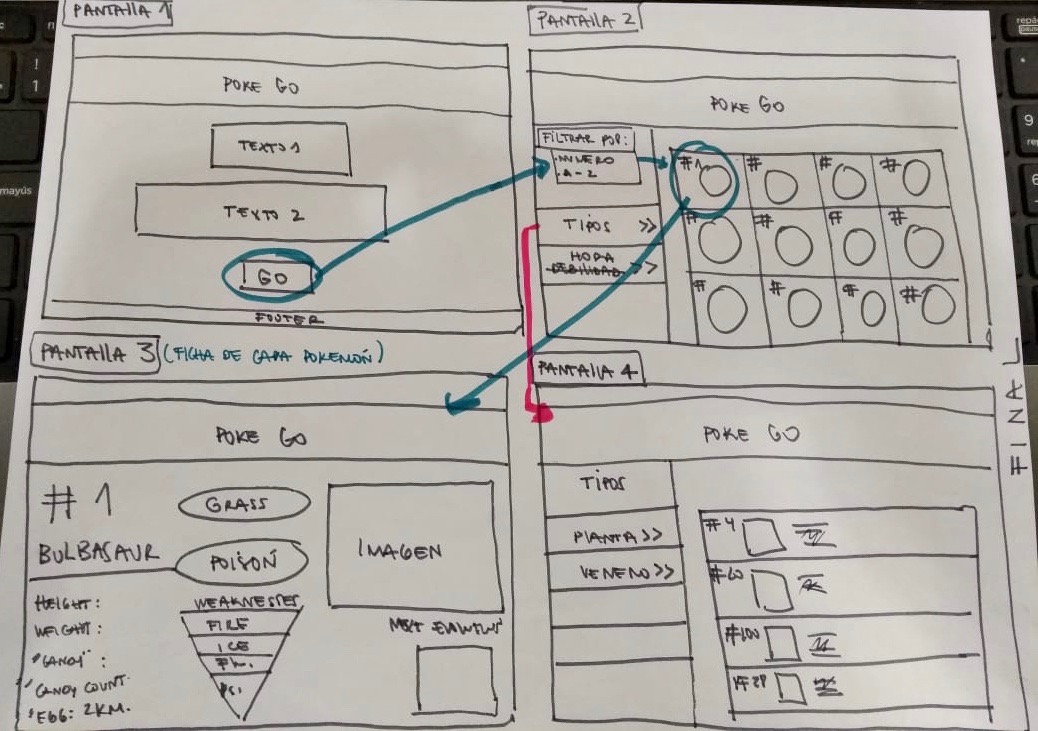 PANTALLA 1
POKE GO
TEXTO 1
TEXTO 2
GO
FOOTER
PANTALLA 2
POKE GO
FILTRAR POR:
.NUMERO
.A-Z
TIPOS >>
HORA
DEBILIDAD >>
#1 # # #
# # # #
# # # #
PANTALLA 3 (FICHA DE CADA POKEMÓN)
POKE GO
# 1
BULBASAUR
GRASS
POISON
IMAGEN
HEIGHT:
WEIGHT:
"CANDY":
CANDY COUNT.
EGG: 2KM.
WEAKNESSES
FIRE
ICE
PSI.
NEXT
PANTALLA 4
POKE GO
TIPOS
PLANTA >>
VENENO >>
#4
#60
#100
FINAL
repág
!
1
9
mayús